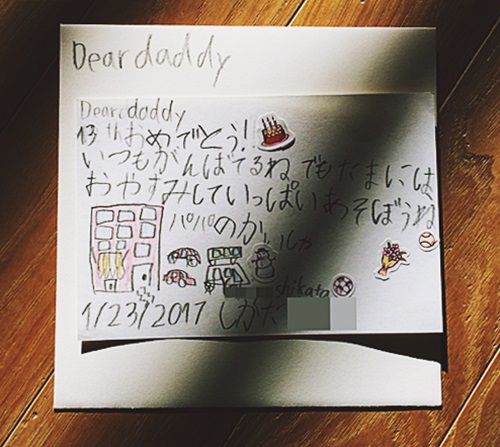 Dear daddy
Dear daddy
13th おめでとう!
いつもがんばてるね でもたまには、
おやすみしていっぱいあそぼうね
パパのかいしゃ
shikata
1/23/2017 しかた